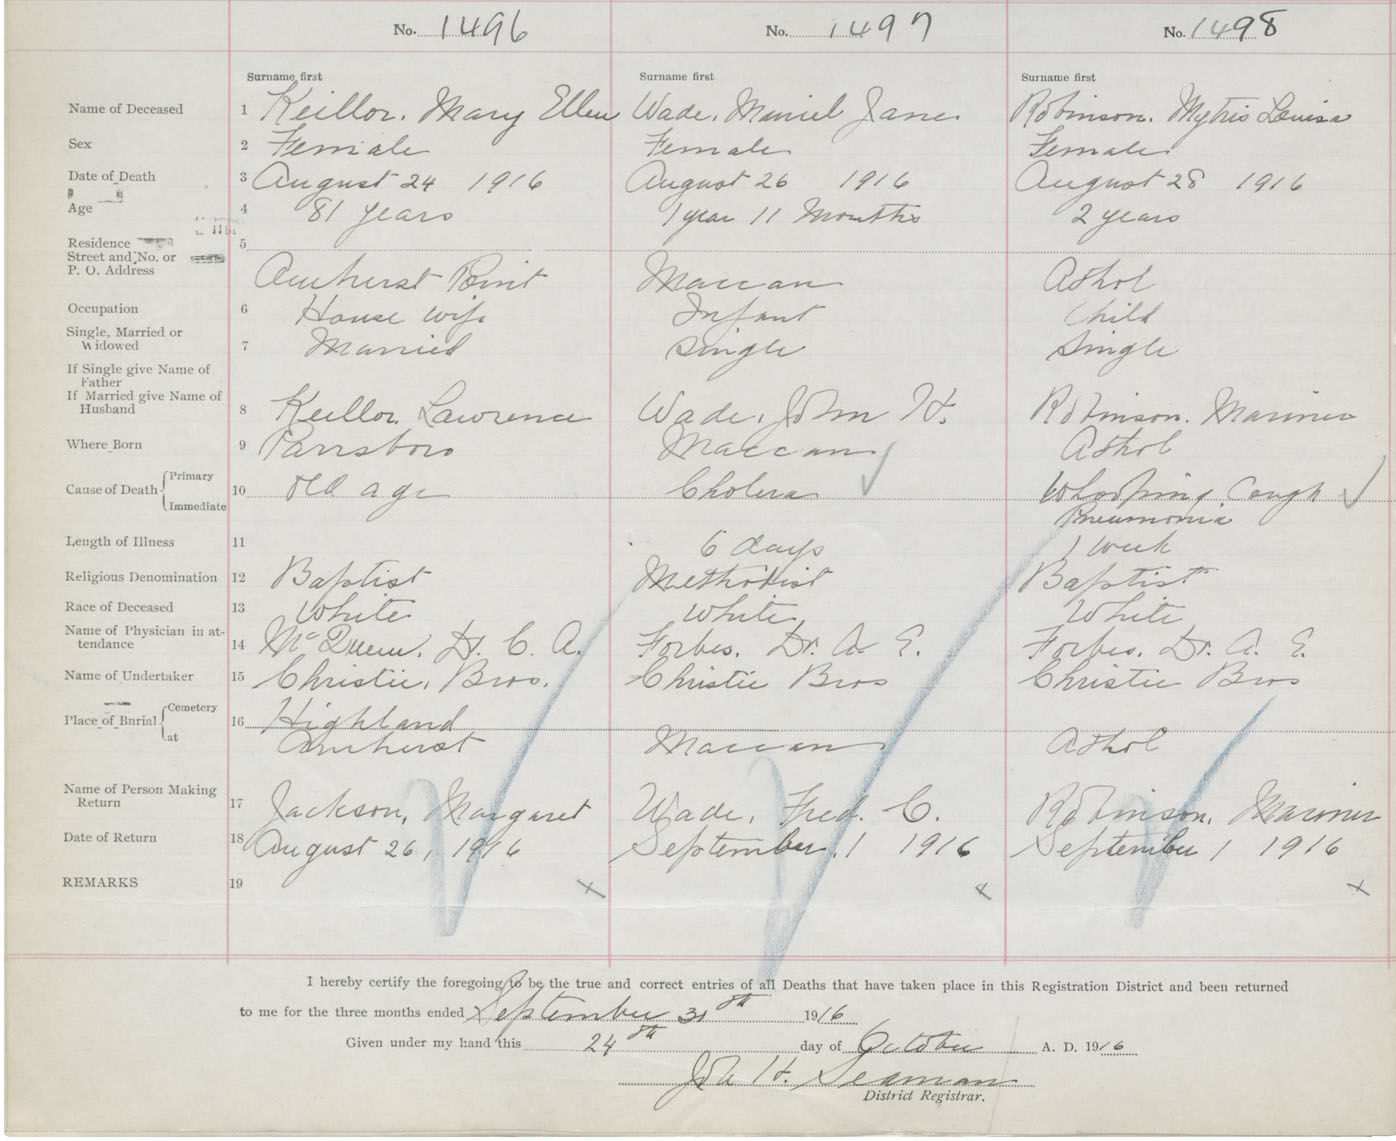 No. 1496 No. 1497 No. 1498
Surname first Surname first Surname first
Name of Deceased 1 Keillor, Mary Ellen Wade, Muriel Jane Robinson, Louisa
Sex 2 Female Female Female
Date of Death 3 August 24 1916 August 26 1916 August 28 1916
Age 4 81 years 1 year 11 Months 2 years
Residence 5
Street and No. or
P. O. Address Amherst Point Maccan Athol
Occupation 6 House wife Infant Child
Single, Married or
Widowed 7 Married Single Single
If Single give Name of
Father
If Married give Name of
Husband 8 Keillor, Lawrence Wade, John H. Robinson, Mariner
Where Born 9 Parrsboro Maccan Athol
Cause of Death Primary
Immediate 10 Old age Cholera Whooping Cough
Pneumonia
Length of Illness 11 6 days 1 week
Religious Denomination 12 Baptist Methodist Baptist
Race of Deceased 13 White White White
Name of Physician in at-
tendance 14 McQueen, Dr. C. A. Forbes, Dr. A. E. Forbes, Dr. A. E.
Name of Undertaker 15 Christie, Bros. Christie Bros Christie Bros
Place of Burial Cemetery 16 Highland
at Amherst Maccan Athol
Name of Person Making
Return 17 Jackson, Margaret Wade, Fred. C. Robinson, Mariner
Date of Return 18 August 26, 1916 September 1 1916 September 1 1916
REMARKS 19 x x x
I hereby certify the foregoing to be the true and correct entries of all Deaths that have taken place in this Registration District and been returned
to me for the three months ended September 30th 1916
Given under my hand this 24th day of October A. D. 1916
H. Seaman
District Registrar.